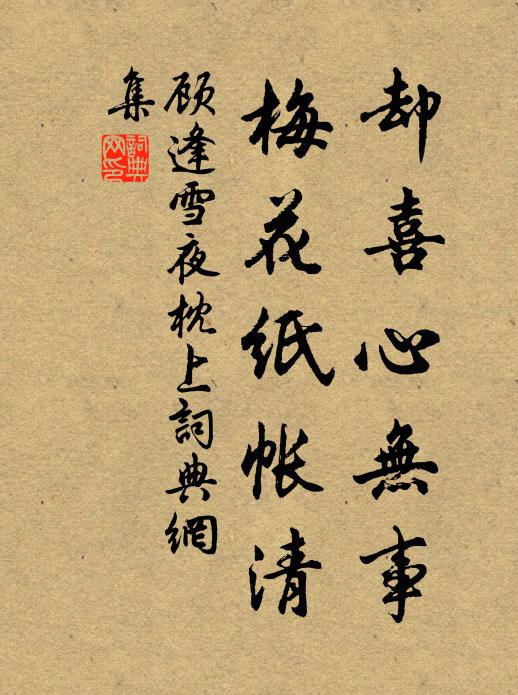 却喜心無事
梅花紙帳清
顾逢雪夜枕上詞典網
集
詞典網印